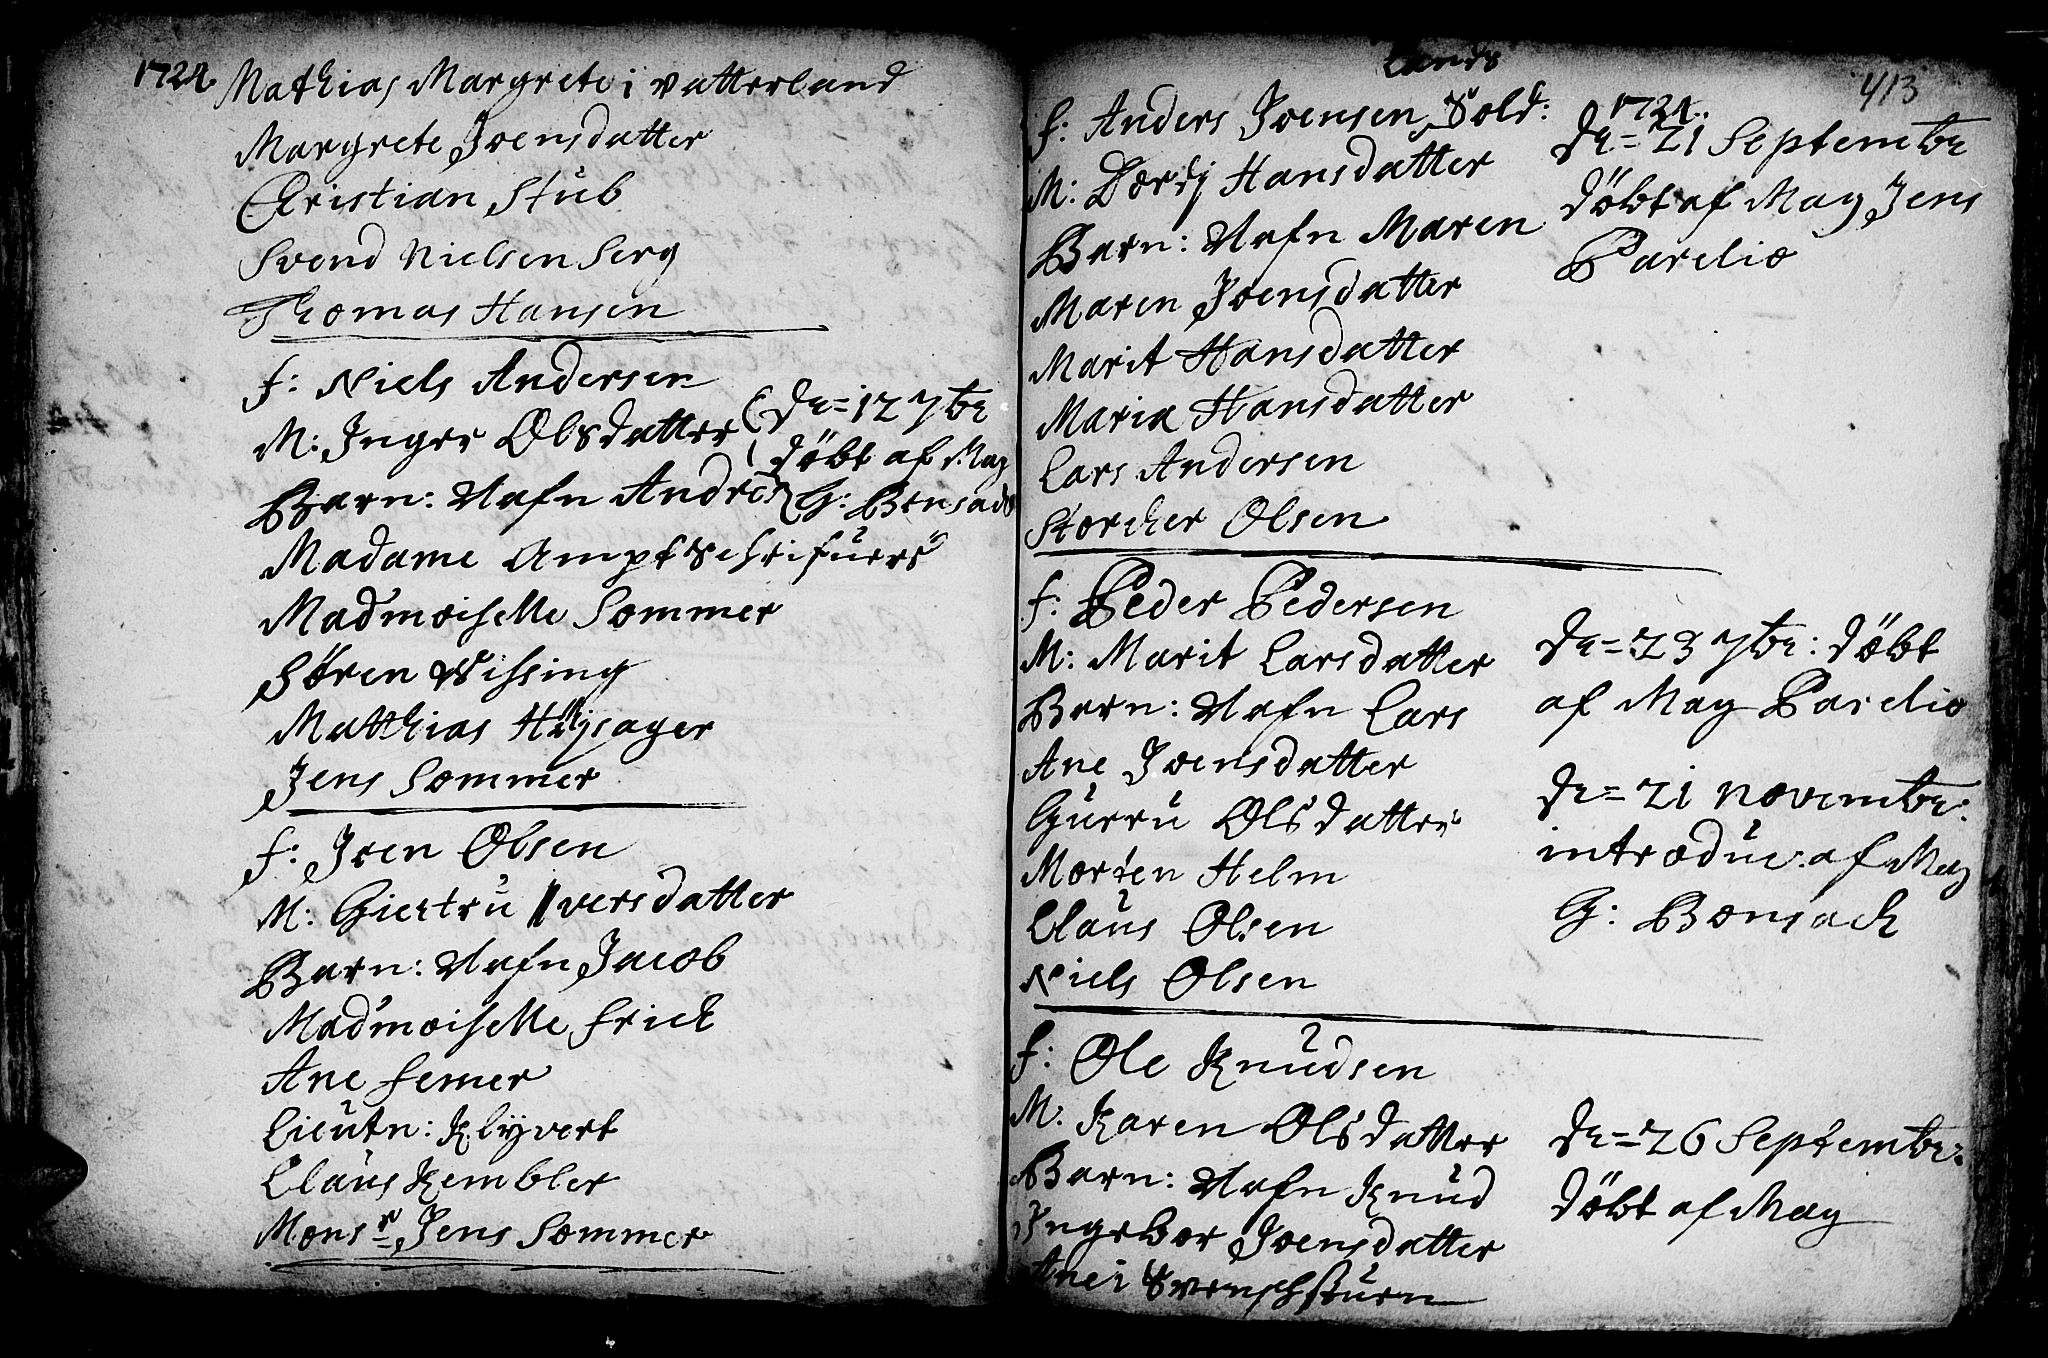 1724.
Mathias Margrete i vatterland
Margrete Joensdatter
Christian Stub
Svend Nielsen Serg
Thomas Hansen
f: Niels Andersen
M: Inger Olsdatter
Barn: Nafn Andres
dn= 12 7br
döbt af Mag
G: Bonsach
Madame Amptschrifuers
Madmoiselle Sommer
Sören Wissing
Matthias Hüysager
Jens Sommer
f: Joen Olsen
M: Giertru Iversdatter
Barn: Nafn Jacob
Madmoiselle frich
Ane femer
Lieutn: Klÿvert
Claus Kembler
Monsr Jens Sommer
413
1724.
Lands
f: Anders Joensen Sold:
M: Dordj Hansdatter
Barn: Nafn Maren
Maren Joensdatter
Marit Hansdatter
Maria Hansdatter
Lars Andersen
Storcher Olsen
dn= 21 Septembr
döbt af Mag Jens
Parelio
f: Peder Pedersen
M: Marit Larsdatter
Barn: Nafn Lars
Ane Joensdatter
Gurru Olsdatter
Morten Helm
Claus Olsen
Niels Olsen
dn= 23 7br: döbt
af Mag Parelio
dn= 21 novembr:
introduc: af Mag
G: Bonsach
f: Ole Knudsen
M: Karen Olsdatter
Barn: Nafn Knud
Ingebor Joensdatter
Ane i
dn= 26 Septembr:
döbt af Mag